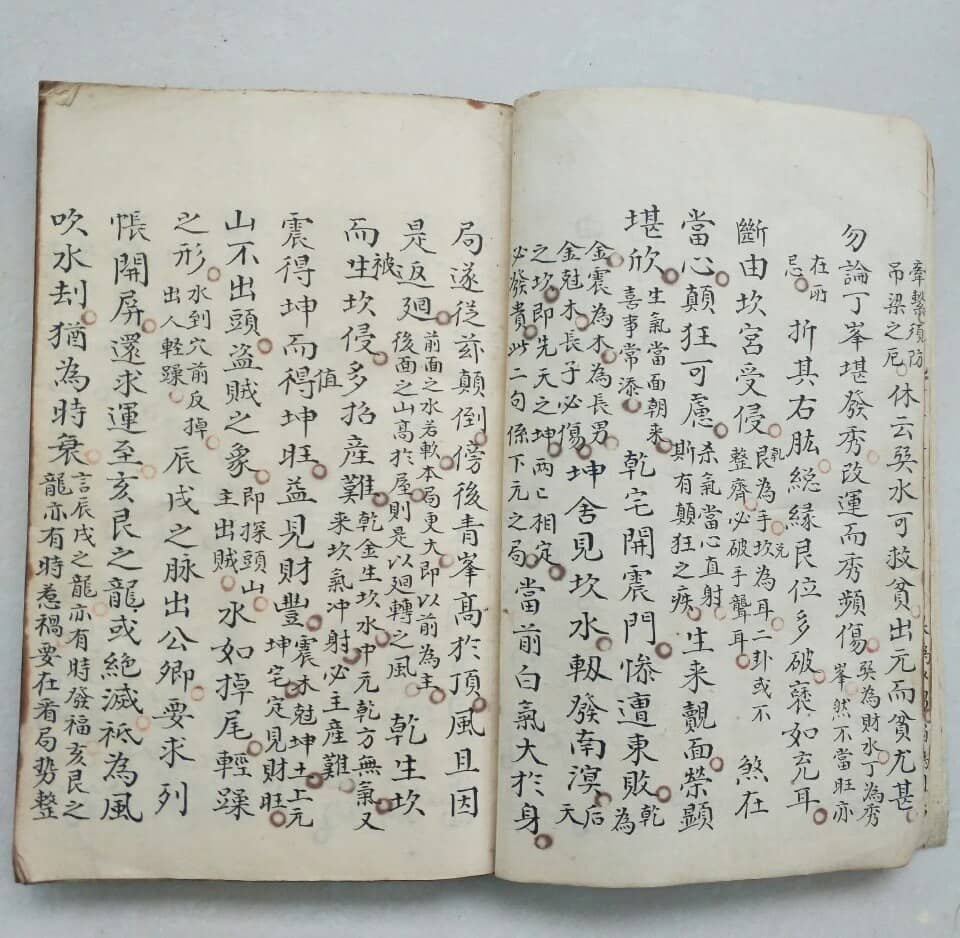 牽繫須防
吊梁之厄
休云巽水可救貧出元而貧尤甚
勿論丁峯堪發秀改運而秀頻傷
巽為財水丁為秀
峯然不當旺亦
在所
忌
折其右肱総緣艮位多破褎如充耳
斷由坎宮受侵
艮為手坎為耳二卦或不
整齊必破手聾耳
煞在
當心顛狂可慮
杀氣當心直射
斯有顛狂之疾
生来覿面榮顯
堪欣
生氣當面朝来
喜事常添
乾宅開震門惨遭東敗
乾
為
金震為木為長男
金尅木長子必傷
坤舍見坎水軔發南溟
后
天
之坎即先天之坤兩亡相定
必發貴此二句係下元之局
當前白氣大於身
局遂従茲顛倒傍後青峯髙於頂風且因
是返廻
前面之水若軟本局更大即以前為主
後面之山高於屋則是以廻轉之風
乾生坎
而被生坎侵多招産難
乾金生坎水中元乾方無氣又
来坎氣冲射必主産難
震得坤而得值坤旺益見財豐
震木尅坤土上元
坤宅定見財旺
山不出頭盗賊之象
即探頭山
主出賊
水如掉尾輕躁
之形
水到穴前反掉
出人輕躁
辰戌之脉出公卿要求列
帳開屏還求運至亥艮之龍或絶滅衹為風
吹水刦猶為時衰
言辰戌之龍亦有時發福亥艮之
龍亦有時惹禍要在看局势整